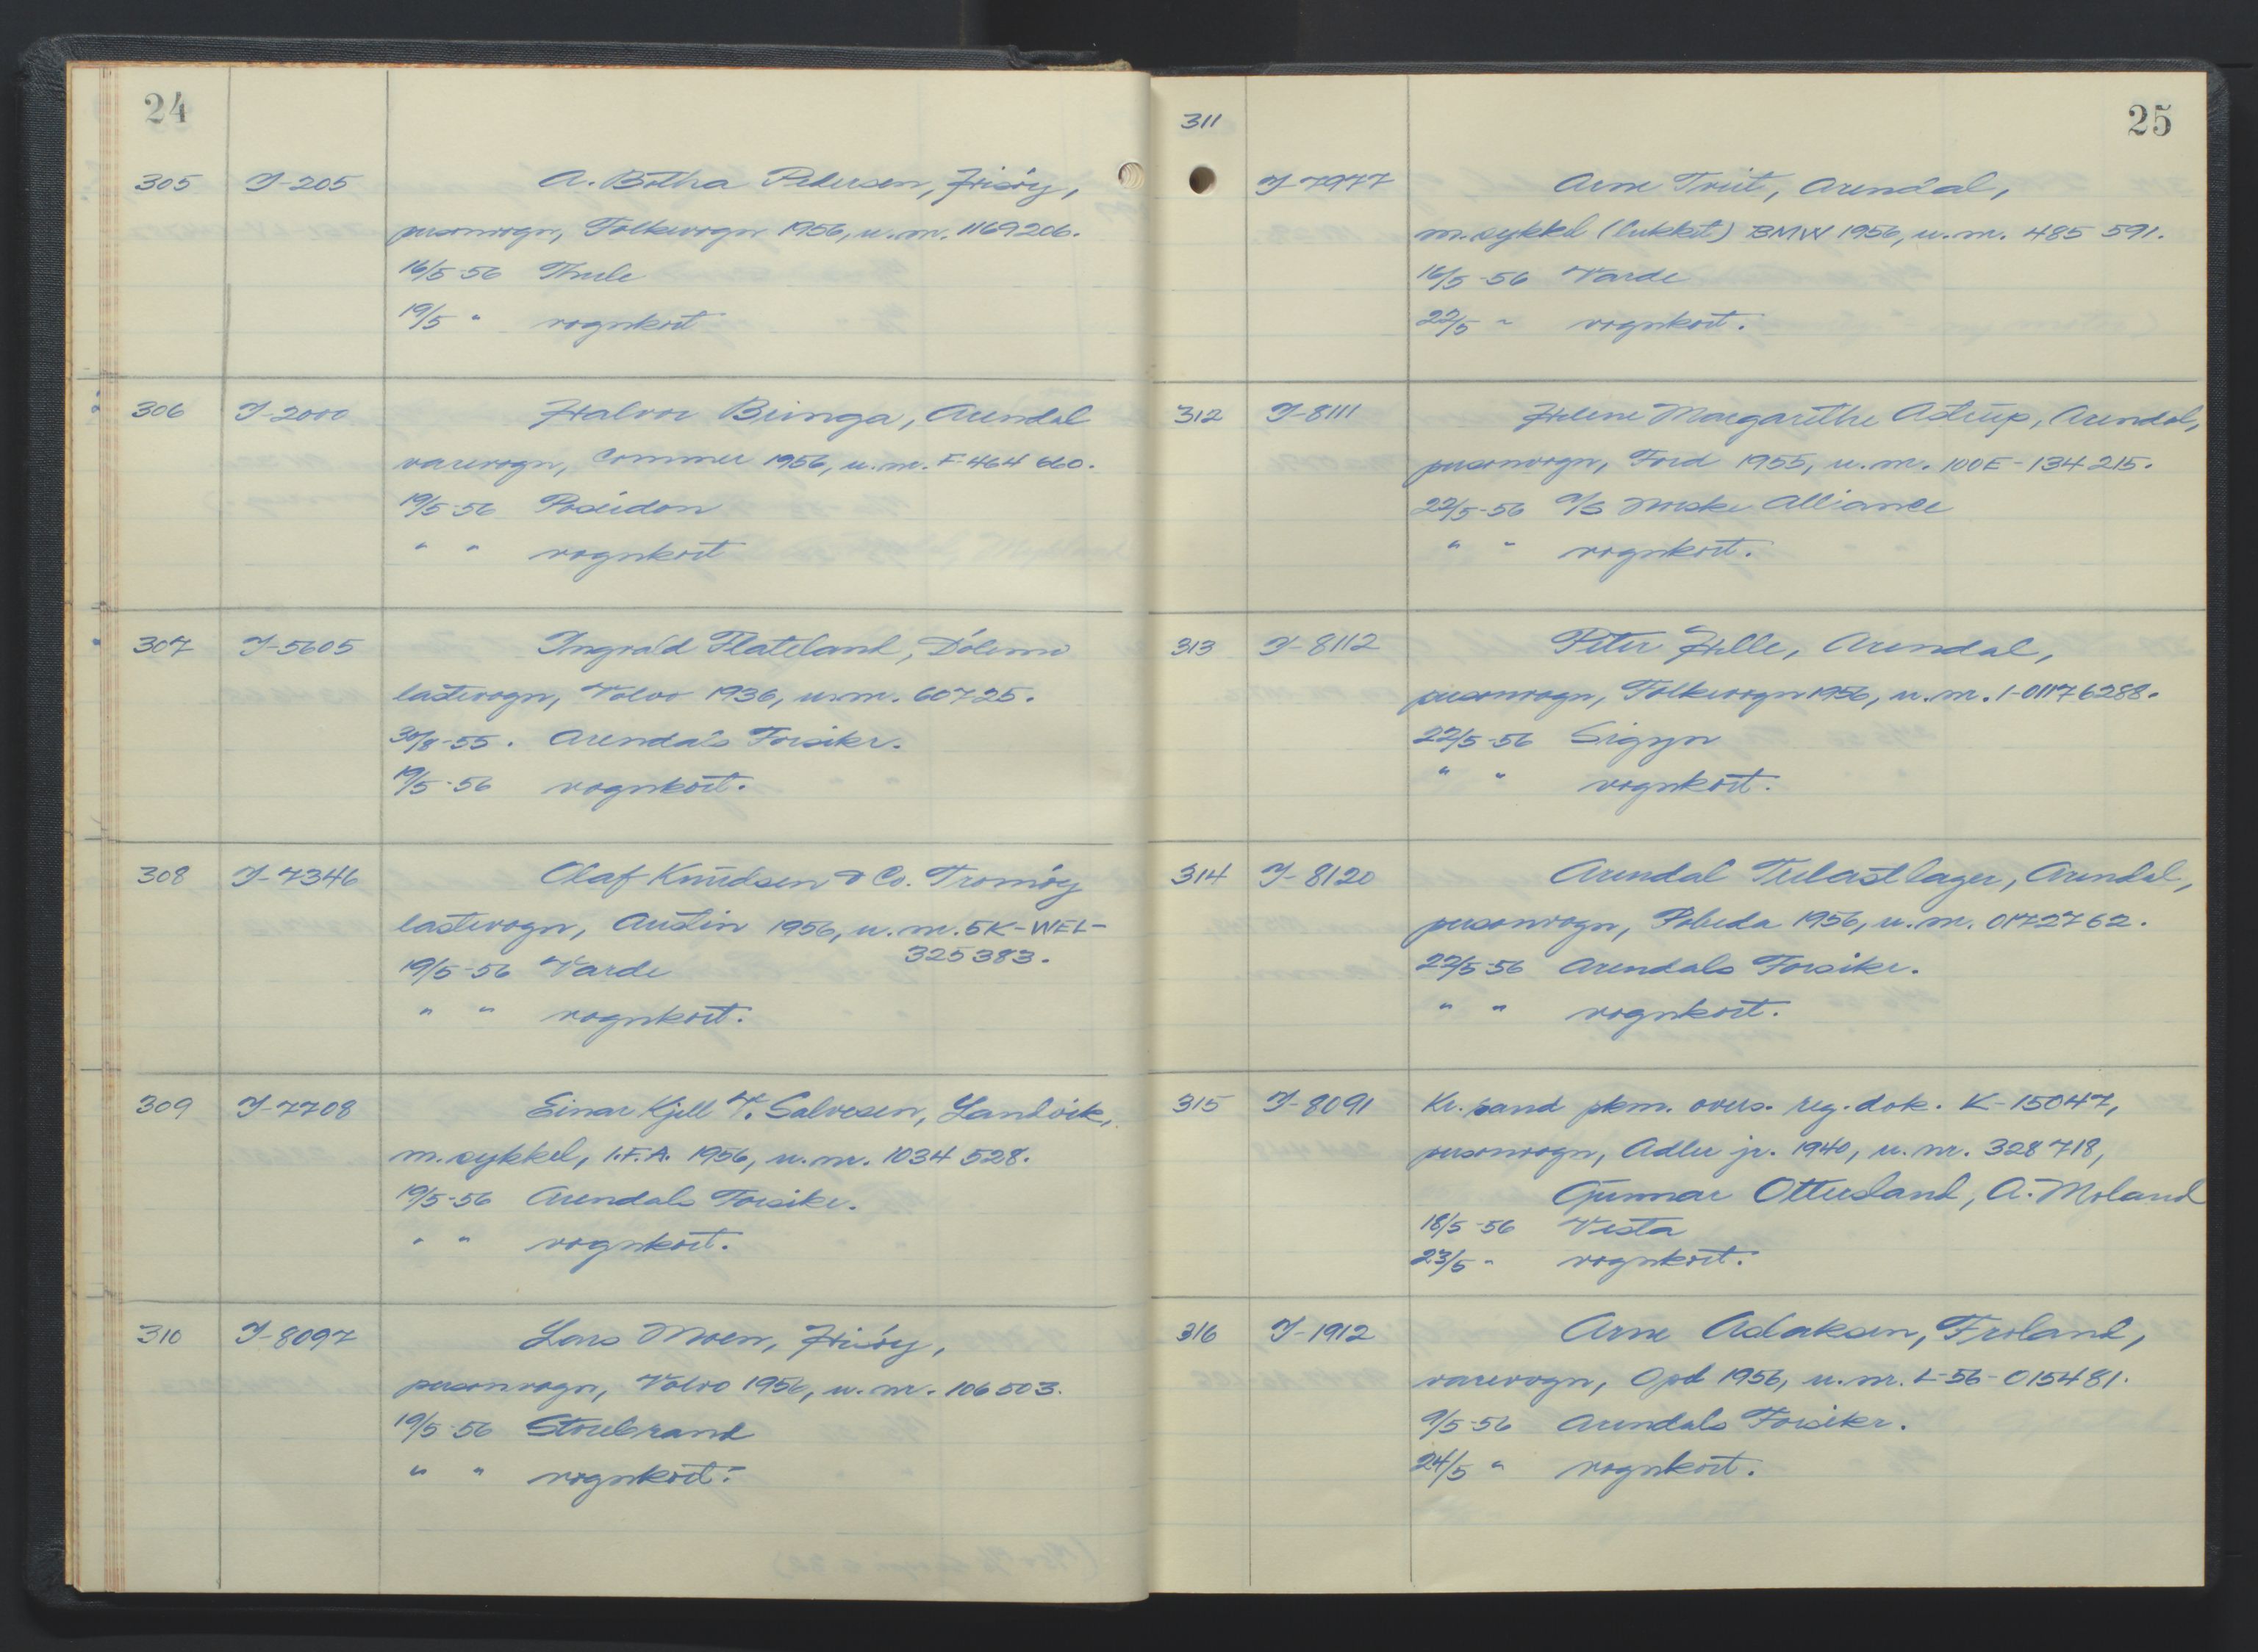 24
305 I-205 A. Botha Pedersen, Hisøy,
personvogn, Folkevogn 1956, u.nr. 1169206.
16/5-56 Thule
19/5 " vognkort
306 I-2000 Halvor Bringa, Arendal
varevogn, Commer 1956, u.nr. F-464 660.
19/5-56 Poseidon
" " vognkort
307 I-5605 Ingvald Flateland, Dølemo
lastevogn, Volvo 1936, u.nr. 60725.
30/8-55. Arendals Forsikr.
19/5-56 vognkort.
308 I-7346 Olaf Knudsen & Co. Tromøy
lastevogn, Austin 1956, u.nr. 5K-WEL-
325383.
19/5-56 Varde
" " vognkort.
309 I-7708 Einar Kjell T. Salvesen, Landvik,
m.sykkel, I.F.A. 1956, u.nr. 1034 528.
19/5-56 Arendals Forsikr.
" " vognkort.
310 I-8097 Lars Moen, Hisøy,
personvogn, Volvo 1956, u.nr. 106503.
19/5-56 Storebrand
" " vognkort.
25
311
I-7977 Arne Tveit, Arendal,
m.sykkel (lukket) BMW 1956, u.nr. 485 591.
16/5-56 Varde
22/5 " vognkort.
312 I-8111 Helene Margarethe Astrup, Arendal,
personvogn, Ford 1955, u.nr. 100E-134215.
22/5-56 A/S Norske Alliance
" " vognkort.
313 I-8112 Peter Helle, Arendal,
personvogn, Folkevogn 1956, u.nr. 1-01176288.
22/5-56 Sigyn
" " vognkort.
314 I-8120 Arendal Trelastlager, Arendal,
personvogn, Pobeda 1956, u.nr. 0172762.
22/5-56 Arendals Forsikr.
" " vognkort.
315 I-8091 Kr.sand pkm. overs. reg.dok. K-15047,
personvogn, Adler jr. 1940, u.nr. 328718,
Gunnar Ottersland, A. Moland
18/5-56 Vesta
23/5 " vognkort.
316 I-1912 Arne Aslaksen, Froland,
varevogn, Opel 1956, u.nr. L-56-015481.
9/5-56 Arendals Forsikr.
24/5 " vognkort.